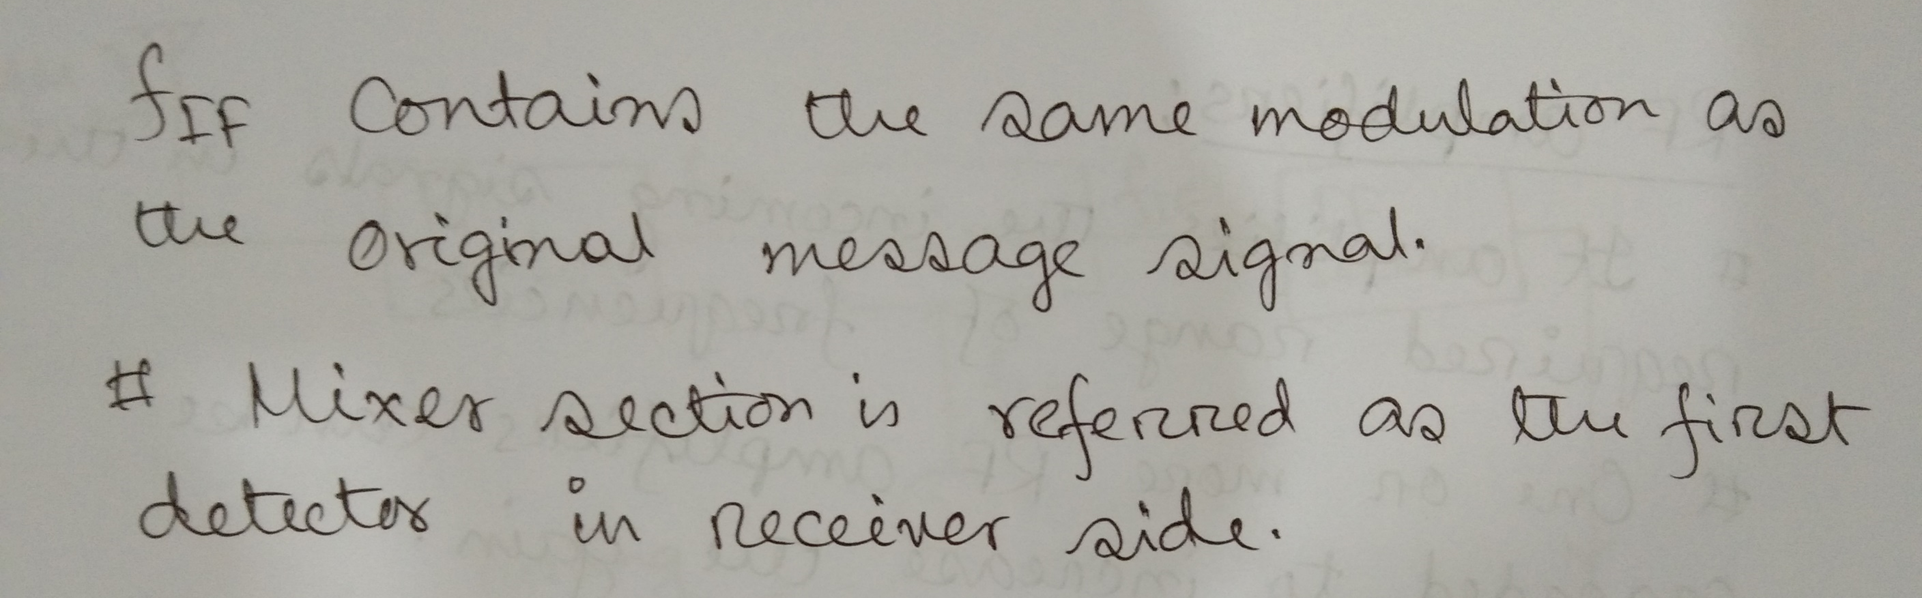 fIF Contains the same modulation as
the original message signal.
# Mixer section is referred as the first
detector in receiver side.